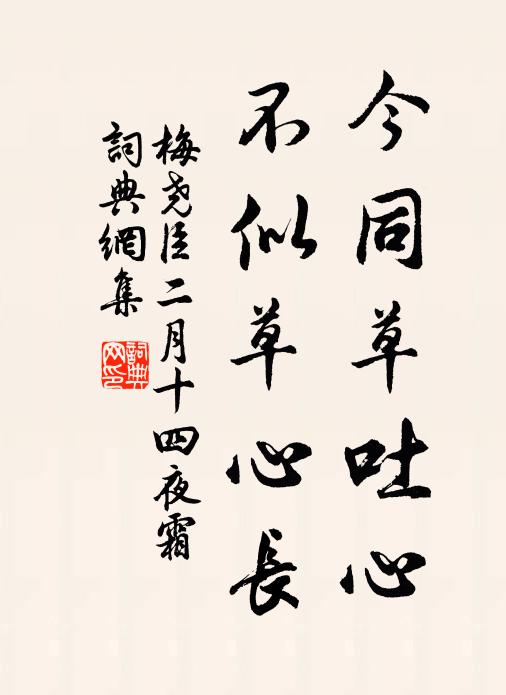 今同草吐心
不似草心長
梅尧臣二月十四夜霜
詞典網集
詞典
网印